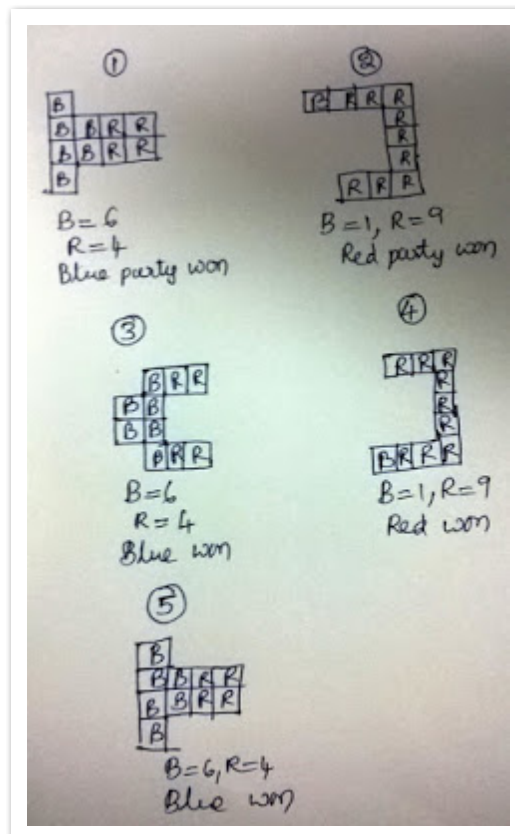 1
B
B B R R
B B R R
B
B = 6
R = 4
Blue party won
2
B R R R
R
R
R
R R R
B = 1, R = 9
Red party won
3
B R R
B B
B B
B R R
B = 6
R = 4
Blue won
4
R R R
R
R
R
B R R R
B = 1, R = 9
Red won
5
B
B B R R
B B R R
B
B = 6, R = 4
Blue won